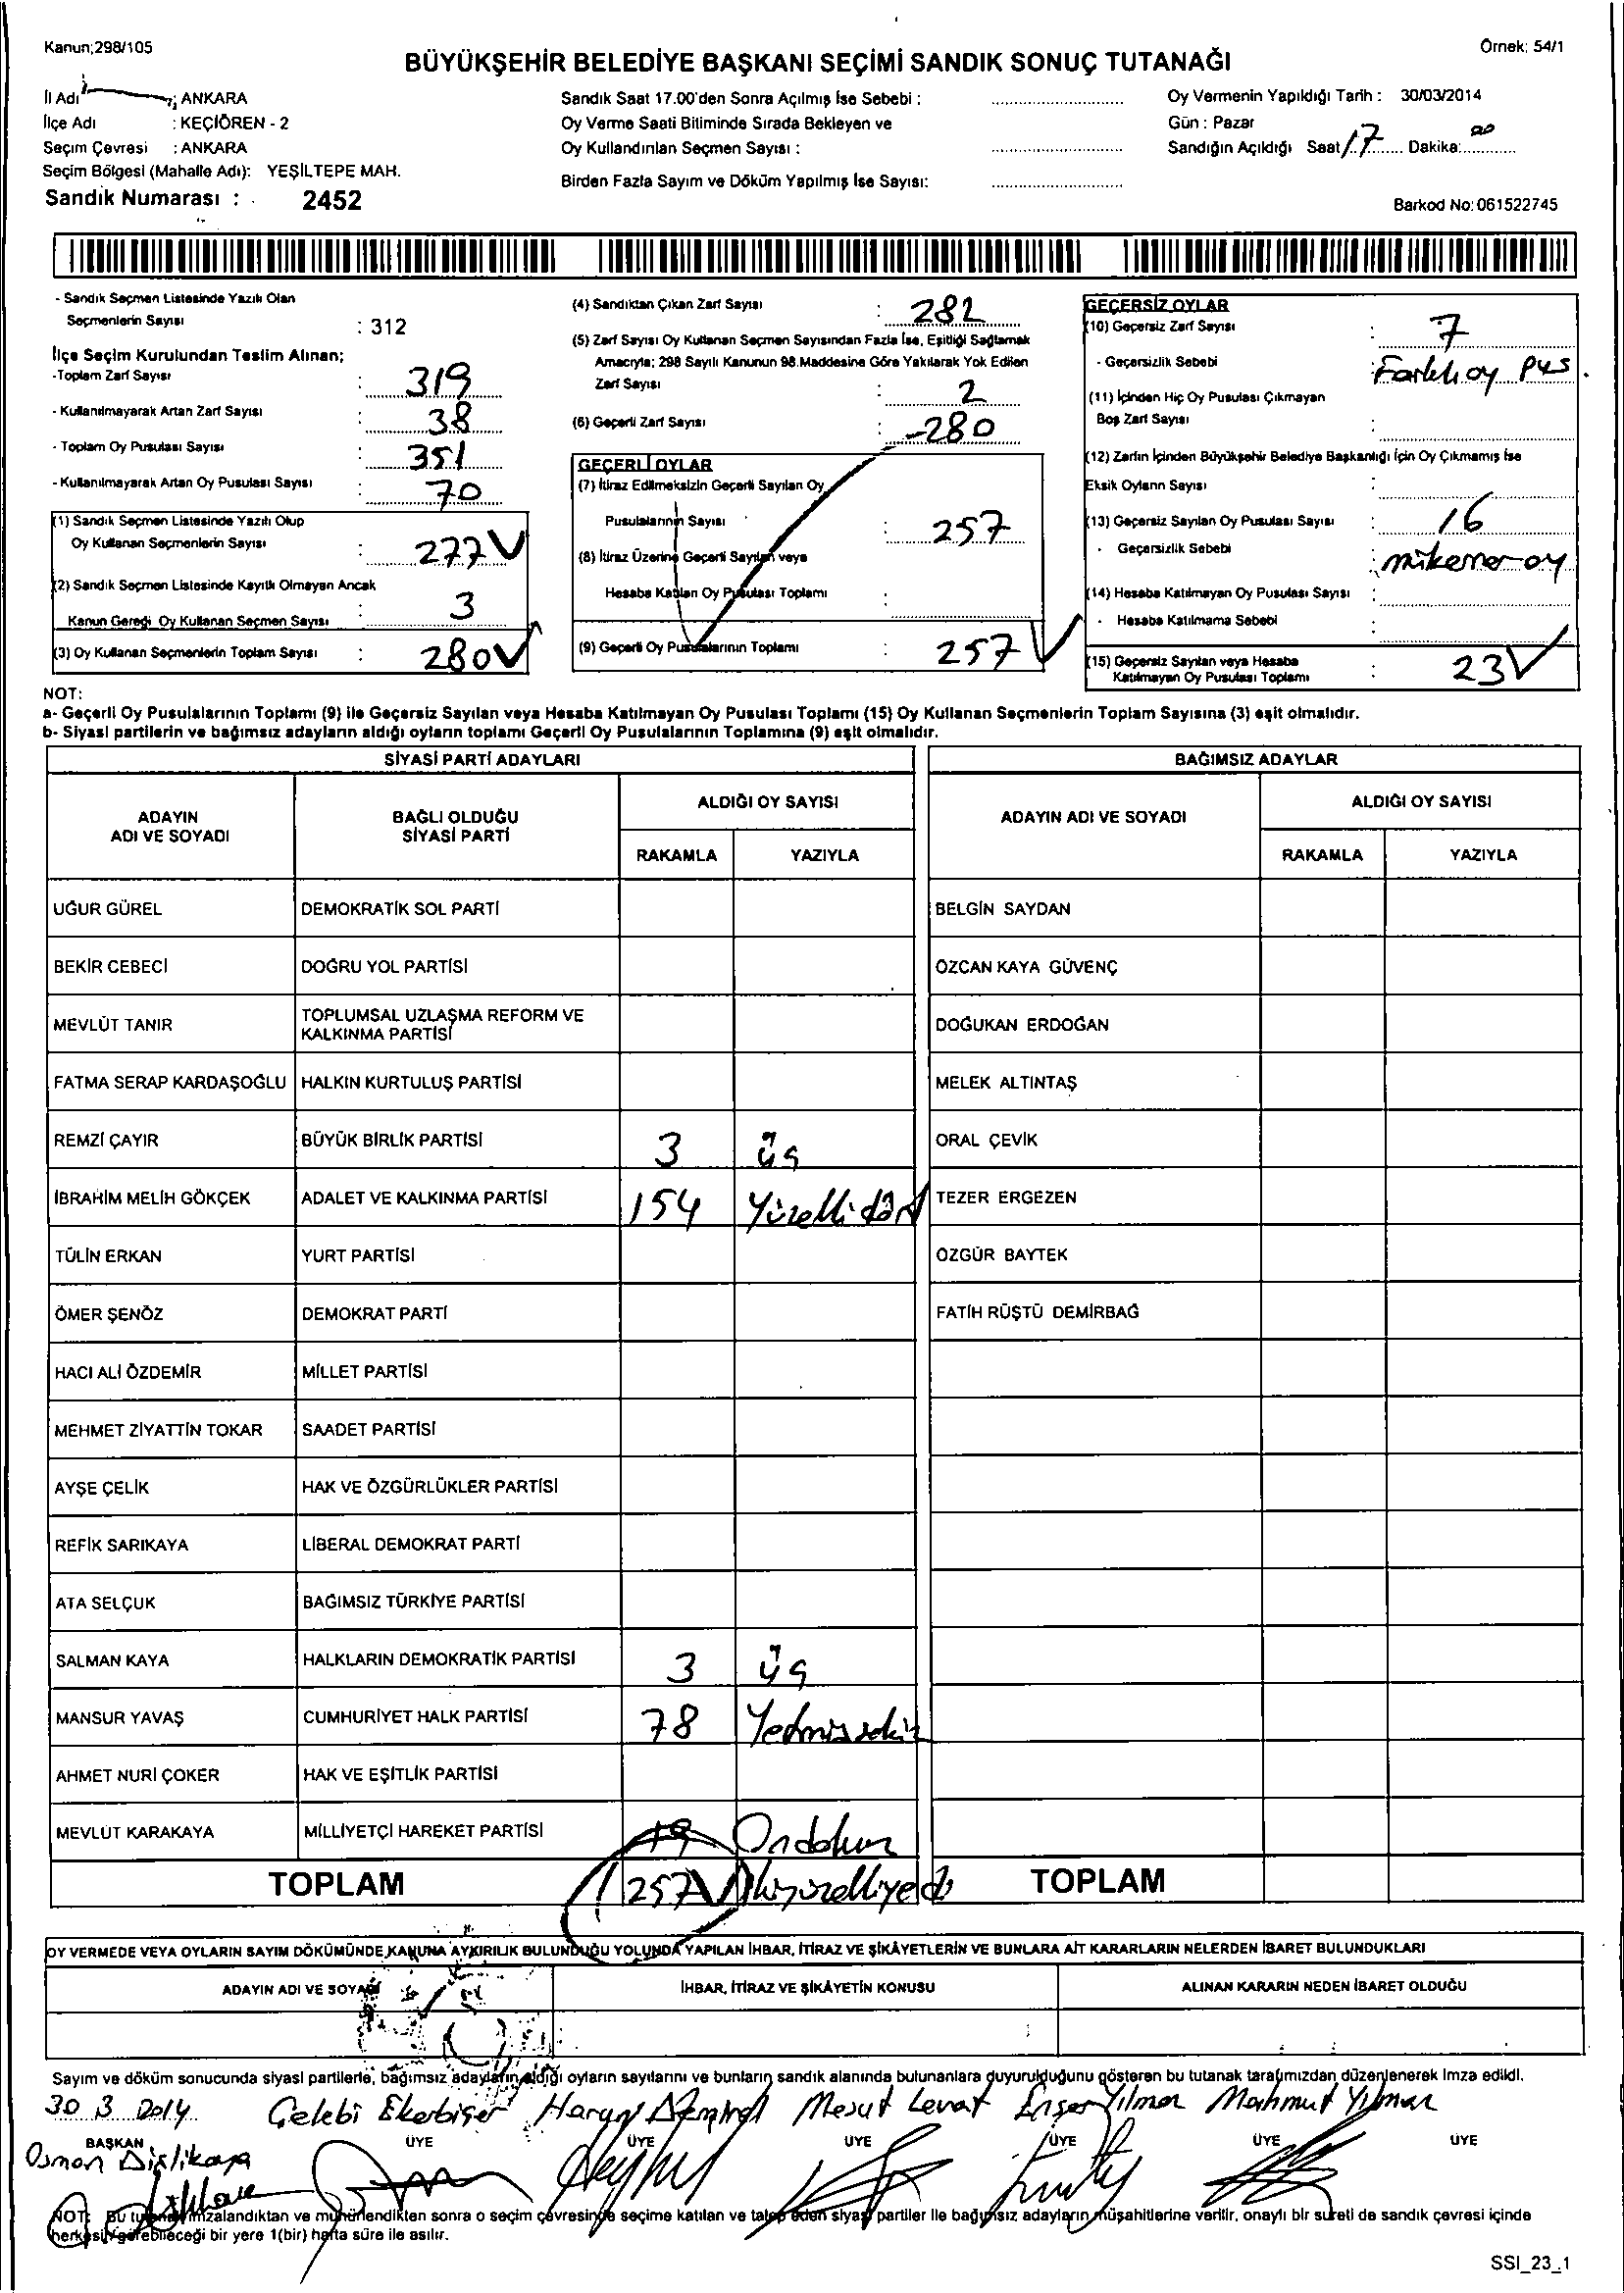 Kanun;298/105
Örnek: 54/1
BÜYÜKŞEHİR BELEDİYE BAŞKANI SEÇİMİ SANDIK SONUÇ TUTANAĞI
İl Adı : ANKARA
İlçe Adı : KEÇİÖREN - 2
Seçim Çevresi : ANKARA
Seçim Bölgesi (Mahalle Adı): YEŞİLTEPE MAH.
Sandık Numarası : 2452
Sandık Saat 17.00'den Sonra Açılmış İse Sebebi :
Oy Verme Saati Bitiminde Sırada Bekleyen ve
Oy Kullandırılan Seçmen Sayısı :
Birden Fazla Sayım ve Döküm Yapılmış İse Sayısı:
Oy Vermenin Yapıldığı Tarih : 30/03/2014
Gün : Pazar
Sandığın Açıldığı Saat 17 Dakika: 00
Barkod No: 061522745
- Sandık Seçmen Listesinde Yazılı Olan
Seçmenlerin Sayısı : 312
İlçe Seçim Kurulundan Teslim Alınan;
-Toplam Zarf Sayısı : 319
- Kullanılmayarak Artan Zarf Sayısı : 38
- Toplam Oy Pusulası Sayısı : 351
- Kullanılmayarak Artan Oy Pusulası Sayısı : 70
(1) Sandık Seçmen Listesinde Yazılı Olup
Oy Kullanan Seçmenlerin Sayısı : 277
(2) Sandık Seçmen Listesinde Kayıtlı Olmayan Ancak
Kanun Gereği Oy Kullanan Seçmen Sayısı : 3
(3) Oy Kullanan Seçmenlerin Toplam Sayısı : 280
(4) Sandıktan Çıkan Zarf Sayısı : 282
(5) Zarf Sayısı Oy Kullanan Seçmen Sayısından Fazla İse, Eşitliği Sağlamak
Amacıyla; 298 Sayılı Kanunun 98.Maddesine Göre Yakılarak Yok Edilen
Zarf Sayısı : 2
(6) Geçerli Zarf Sayısı : 280
GEÇERLİ OYLAR
(7) İtiraz Edilmeksizin Geçerli Sayılan Oy
Pusulalarının Sayısı : 257
(8) İtiraz Üzerine Geçerli Sayılan veya
Hesaba Katılan Oy Pusulası Toplamı :
(9) Geçerli Oy Pusulalarının Toplamı : 257
GEÇERSİZ OYLAR
(10) Geçersiz Zarf Sayısı : 7
- Geçersizlik Sebebi : Farklı oy pus.
(11) İçinden Hiç Oy Pusulası Çıkmayan
Boş Zarf Sayısı :
(12) Zarfın İçinden Büyükşehir Belediye Başkanlığı İçin Oy Çıkmamış İse
Eksik Oyların Sayısı :
(13) Geçersiz Sayılan Oy Pusulası Sayısı : 16
- Geçersizlik Sebebi : mükerrer oy
(14) Hesaba Katılmayan Oy Pusulası Sayısı :
- Hesaba Katılmama Sebebi :
(15) Geçersiz Sayılan veya Hesaba
Katılmayan Oy Pusulası Toplamı : 23
NOT:
a- Geçerli Oy Pusulalarının Toplamı (9) ile Geçersiz Sayılan veya Hesaba Katılmayan Oy Pusulası Toplamı (15) Oy Kullanan Seçmenlerin Toplam Sayısına (3) eşit olmalıdır.
b- Siyasi partilerin ve bağımsız adayların aldığı oyların toplamı Geçerli Oy Pusulalarının Toplamına (9) eşit olmalıdır.
SİYASİ PARTİ ADAYLARI
BAĞIMSIZ ADAYLAR
ADAYIN ADI VE SOYADI
BAĞLI OLDUĞU SİYASİ PARTİ
ALDIĞI OY SAYISI
RAKAMLA YAZIYLA
ADAYIN ADI VE SOYADI
ALDIĞI OY SAYISI
RAKAMLA YAZIYLA
UĞUR GÜREL DEMOKRATİK SOL PARTİ BELGİN SAYDAN
BEKİR CEBECİ DOĞRU YOL PARTİSİ ÖZCAN KAYA GÜVENÇ
MEVLÜT TANIR TOPLUMSAL UZLAŞMA REFORM VE KALKINMA PARTİSİ DOĞUKAN ERDOĞAN
FATMA SERAP KARDAŞOĞLU HALKIN KURTULUŞ PARTİSİ MELEK ALTINTAŞ
REMZİ ÇAYIR BÜYÜK BİRLİK PARTİSİ 3 üç ORAL ÇEVİK
İBRAHİM MELİH GÖKÇEK ADALET VE KALKINMA PARTİSİ 154 Yüzellidört TEZER ERGEZEN
TÜLİN ERKAN YURT PARTİSİ ÖZGÜR BAYTEK
ÖMER ŞENÖZ DEMOKRAT PARTİ FATİH RÜŞTÜ DEMİRBAĞ
HACI ALİ ÖZDEMİR MİLLET PARTİSİ
MEHMET ZİYATTİN TOKAR SAADET PARTİSİ
AYŞE ÇELİK HAK VE ÖZGÜRLÜKLER PARTİSİ
REFİK SARIKAYA LİBERAL DEMOKRAT PARTİ
ATA SELÇUK BAĞIMSIZ TÜRKİYE PARTİSİ
SALMAN KAYA HALKLARIN DEMOKRATİK PARTİSİ 3 üç
MANSUR YAVAŞ CUMHURİYET HALK PARTİSİ 78 Yetmişsekiz
AHMET NURİ ÇOKER HAK VE EŞİTLİK PARTİSİ
MEVLÜT KARAKAYA MİLLİYETÇİ HAREKET PARTİSİ 19 Ondokuz
TOPLAM 257 İkiyüzelliyedi TOPLAM
OY VERMEDE VEYA OYLARIN SAYIM DÖKÜMÜNDE KANUNA AYKIRILIK BULUNDUĞU YOLUNDA YAPILAN İHBAR, İTİRAZ VE ŞİKÂYETLERİN VE BUNLARA AİT KARARLARIN NELERDEN İBARET BULUNDUKLARI
ADAYIN ADI VE SOYADI İHBAR, İTİRAZ VE ŞİKÂYETİN KONUSU ALINAN KARARIN NEDEN İBARET OLDUĞU
Sayım ve döküm sonucunda siyasi partilerle, bağımsız adayların aldığı oyların sayılarını ve bunların sandık alanında bulunanlara duyurulduğunu gösteren bu tutanak tarafımızdan düzenlenerek imza edildi.
30 3 2014 Çelebi Mesut Levat Yılmaz Mahmut Yılmaz
BAŞKAN ÜYE ÜYE ÜYE ÜYE ÜYE ÜYE
Osman Dişlikaya
NOT: Bu tutanak imzalandıktan ve mühürlendikten sonra o seçim çevresinde seçime katılan ve talep eden siyasi partiler ile bağımsız adayların müşahitlerine verilir, onaylı bir sureti de sandık çevresi içinde
herkesin görebileceği bir yere 1(bir) hafta süre ile asılır.
SSI_23_1